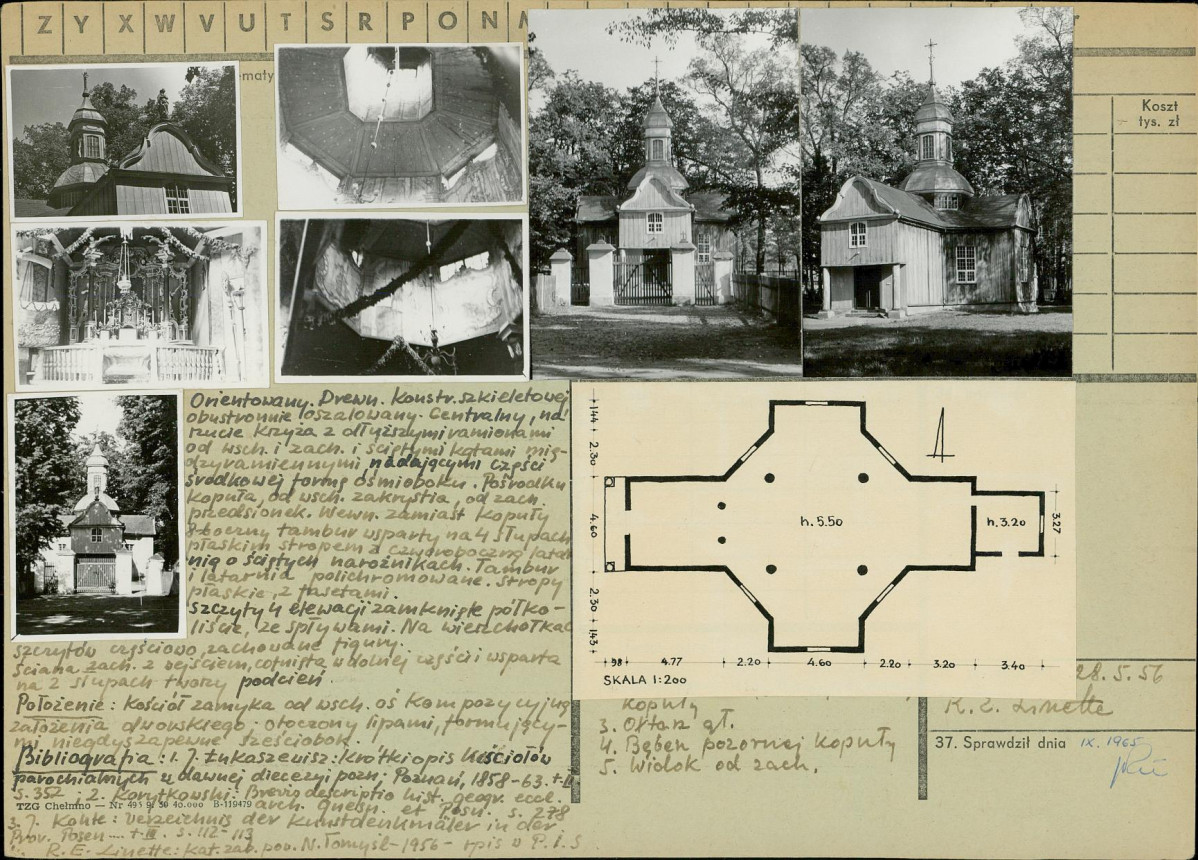 Z Y X W V U T S R P O N
maty
Koszt
tys. zł
Orientowany. Drewn. Konstr. szkieletowej
obustronnie oszalowany. Centralny, na
rzucie krzyża z dłuższymi ramionami
od wsch. i zach. i ściętymi kątami mię-
dzyramiennymi nadającymi części
środkowej formę ośmioboku. Pośrodku
kopuła, od wsch. zakrystia, od zach.
przedsionek. Wewn. zamiast kopuły
8-boczny tambur wsparty na 4 słupach
płaskim stropem z czworoboczną latar
nią o ściętych narożnikach. Tambur
i latarnia polichromowane. Stropy
płaskie, z fasetami.
Szczyty 4 elewacji zamknięte półko-
liście, ze spływami. Na wierzchołkac
szczytów częściowo zachowane figury.
Ściana zach. z wejściem, cofnięta w dolnej części i wsparta
na 2 słupach tworzy podcień.
Położenie: Kościół zamyka od wsch. oś kompozycyjną
założenia dworskiego; otoczony lipami, formujący-
mi niegdyś zapewne sześciobok.
Bibliografia: 1. J. Łukaszewicz: Krótki opis Kościołów
parochialnych w dawnej diecezji pozn; Poznań, 1858-63. t. II
s. 352; 2. Korytkowski: Brevis descriptio hist. geogr. eccl.
TZG Chełmno — Nr 40.000 B-119479
arch. gnesn. et Posn. s. 278
3. J. Kohte: Verzeichnis der Kunstdenkmäler in der
Prov. Posen .... t. III. s. 112-113
R. E. Linette: Kat. zab. pow. N. Tomyśl - 1956 - rpis w P.I.S
144
2.30
4.60
2.30
143
h. 5.50
h. 3.20
3.27
98
4.77
2.20
4.60
2.20
3.20
3.40
SKALA 1:200
kopuły
3. Ołtarz gł.
4. Bęben pozornej kopuły
5. Widok od zach.
28. 5. 56
R. E. Linette
37. Sprawdził dnia IX. 1965